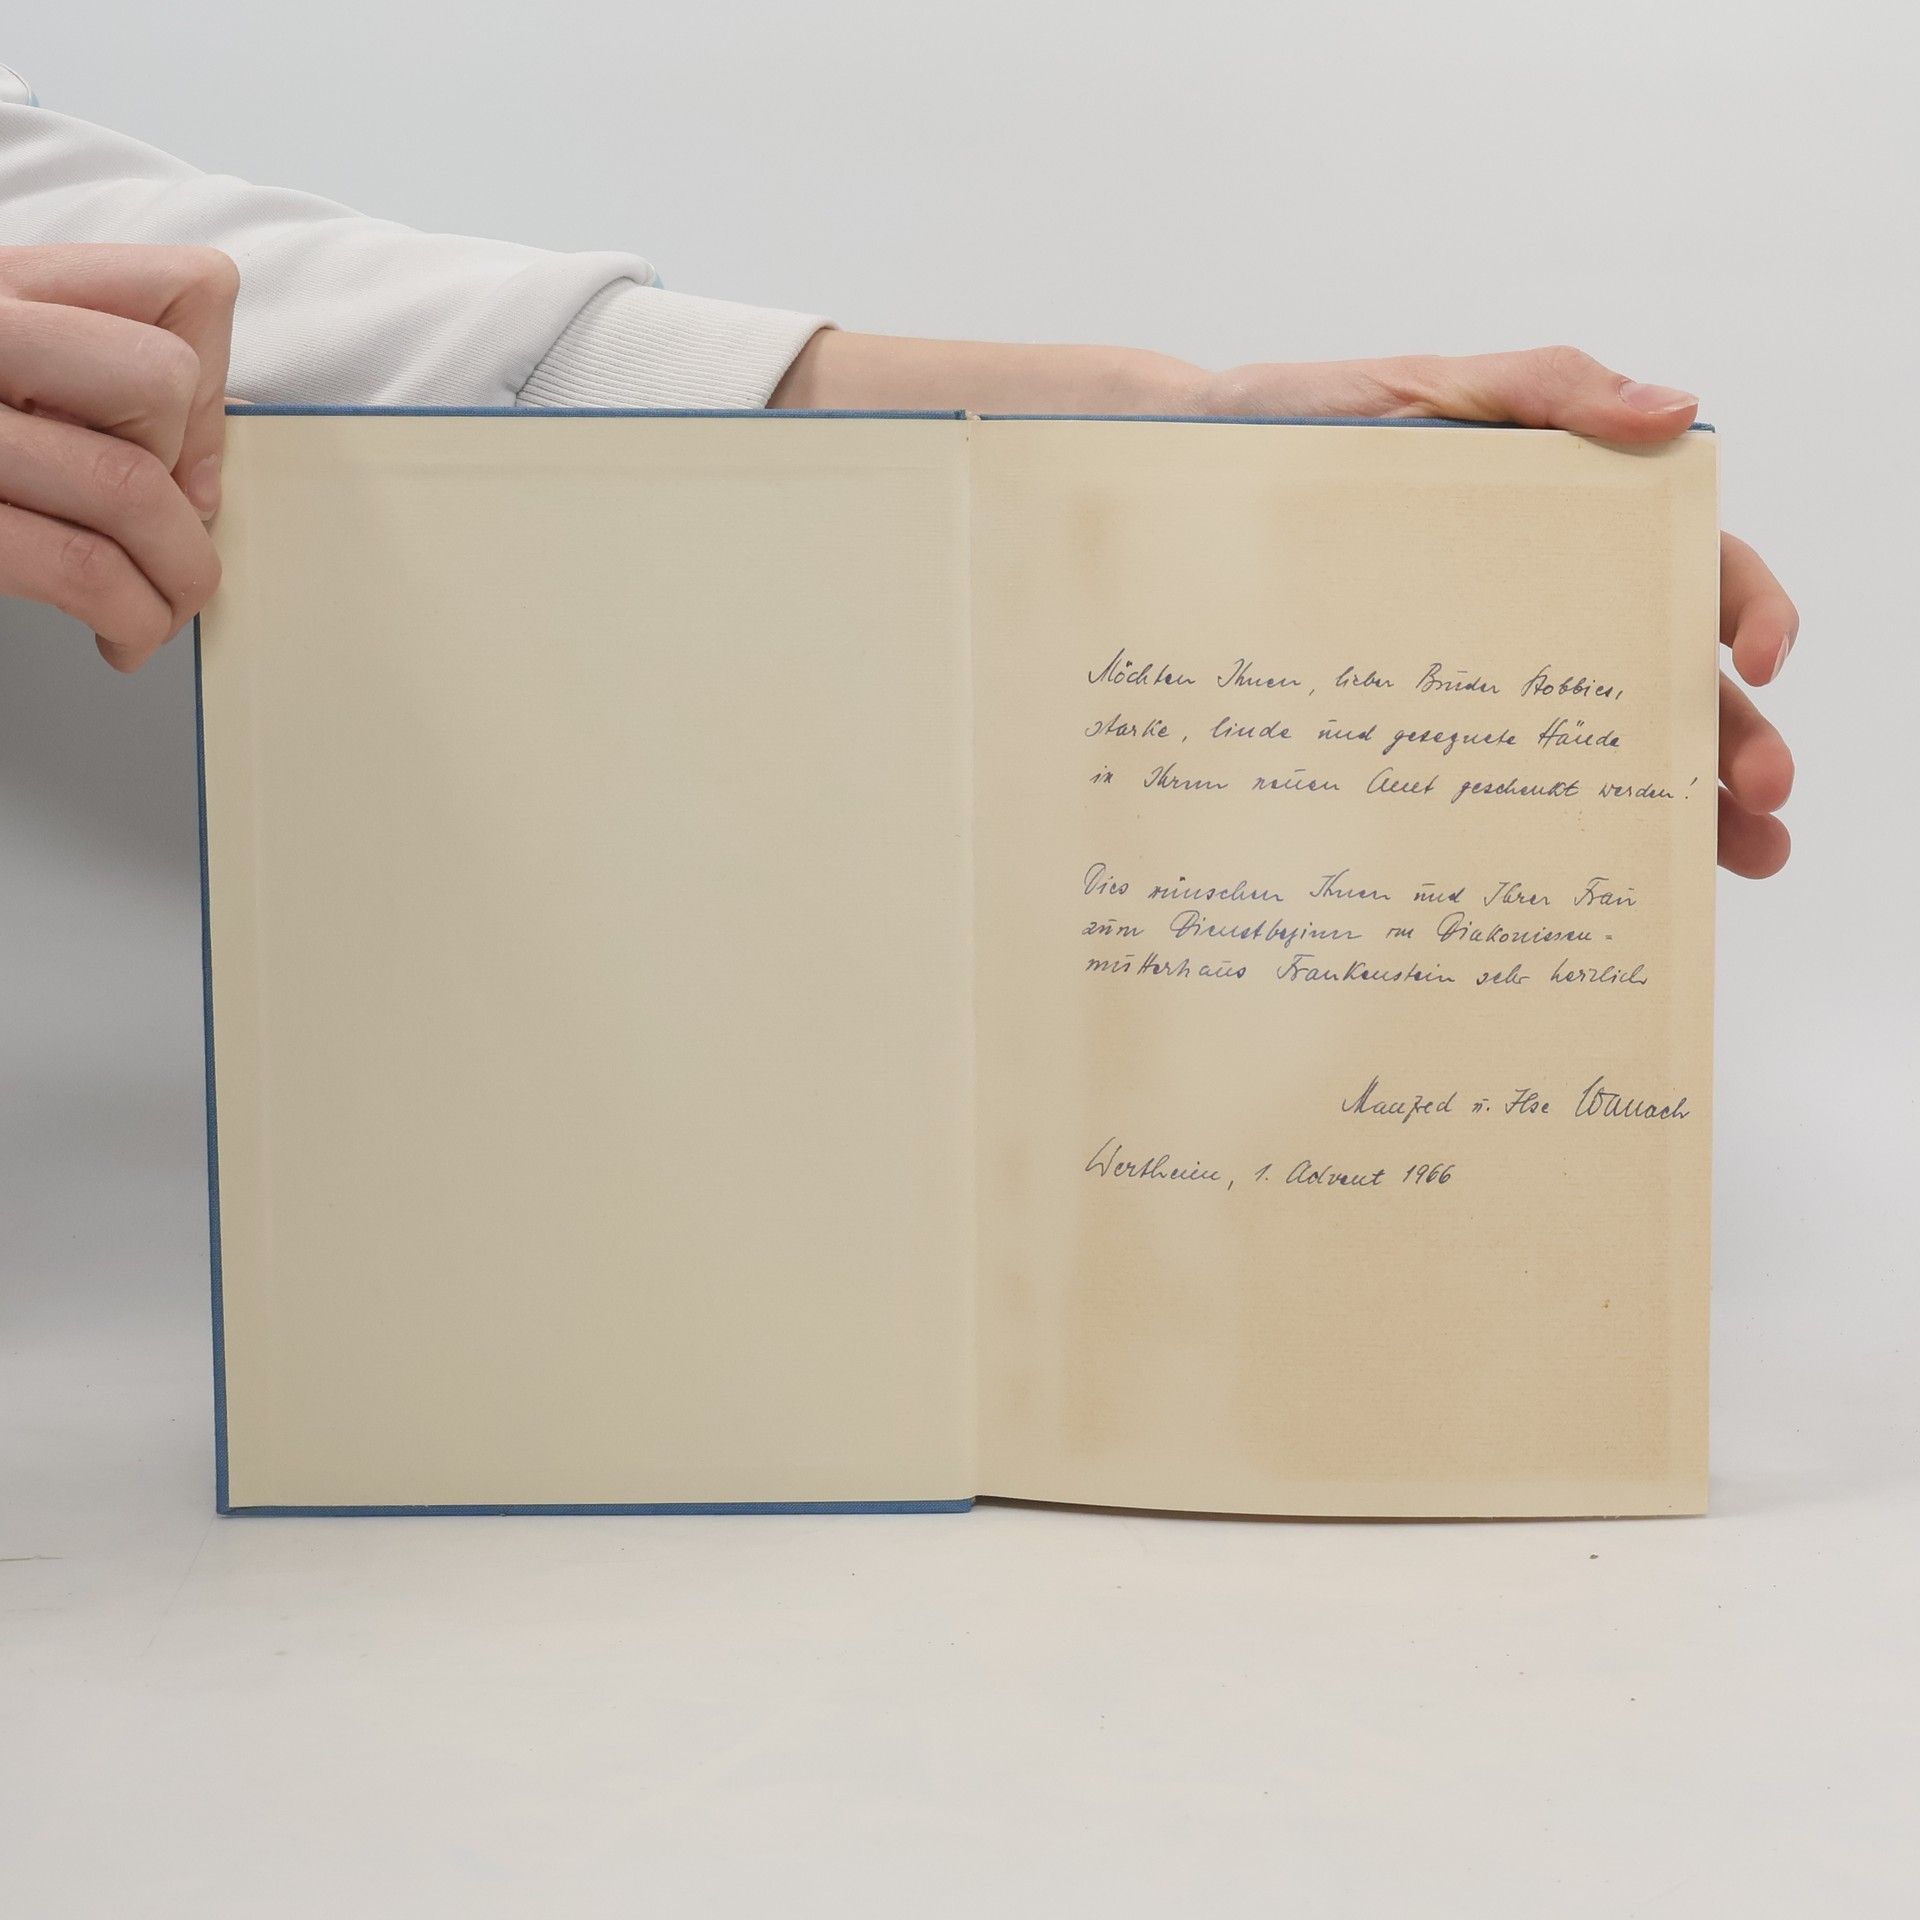 Möchten Ihnen, lieber Bruder Stobbies,
starke, linde und gesegnete Hände
in Ihrem neuen Amt geschenkt werden!
Dies wünschen Ihnen und Ihrer Frau
zum Dienstbeginn im Diakonissen=
mutterhaus Frankenstein sehr herzlich
Manfred u. Ilse
Wertheim, 1. Advent 1966